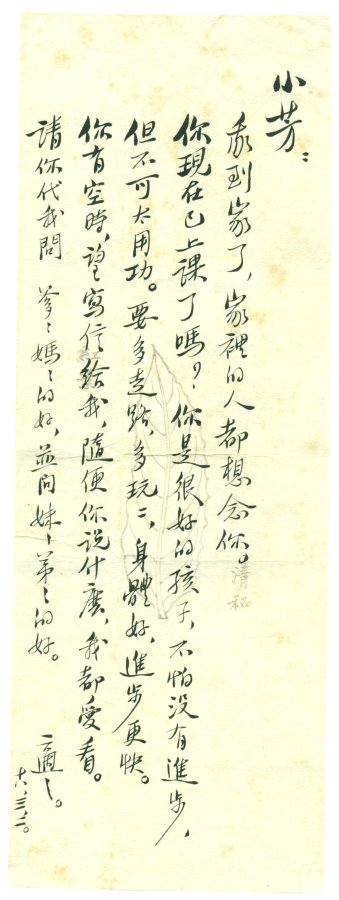 小芳：
我到家了，家裡的人都想念你。
你現在已上課了嗎？你是很好的孩子，不怕没有進步，
但不可太用功。要多走路，多玩〻，身體好，進步更快。
你有空時，望寫信給我，隨便你説什麽，我都愛看。
請你代我問　爹〻媽〻的好，並問妹〻弟〻的好。
適之。
十八，三，二。
清秘